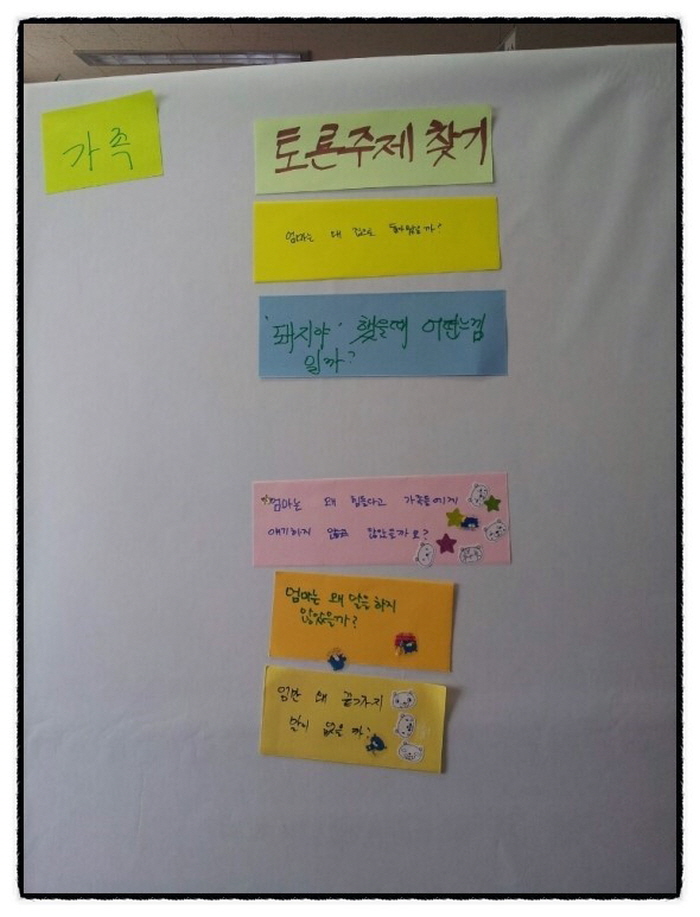 가족
토론주제 찾기
엄마는 왜 집으로 돌아왔을까?
'돼지야' 했을때 어떤느낌
일까?
엄마는 왜 힘들다고 가족들에게
얘기하지 않고 않았을까요?
엄마는 왜 말을 하지
않았을까?
엄만 왜 끝까지
말이 없을까?